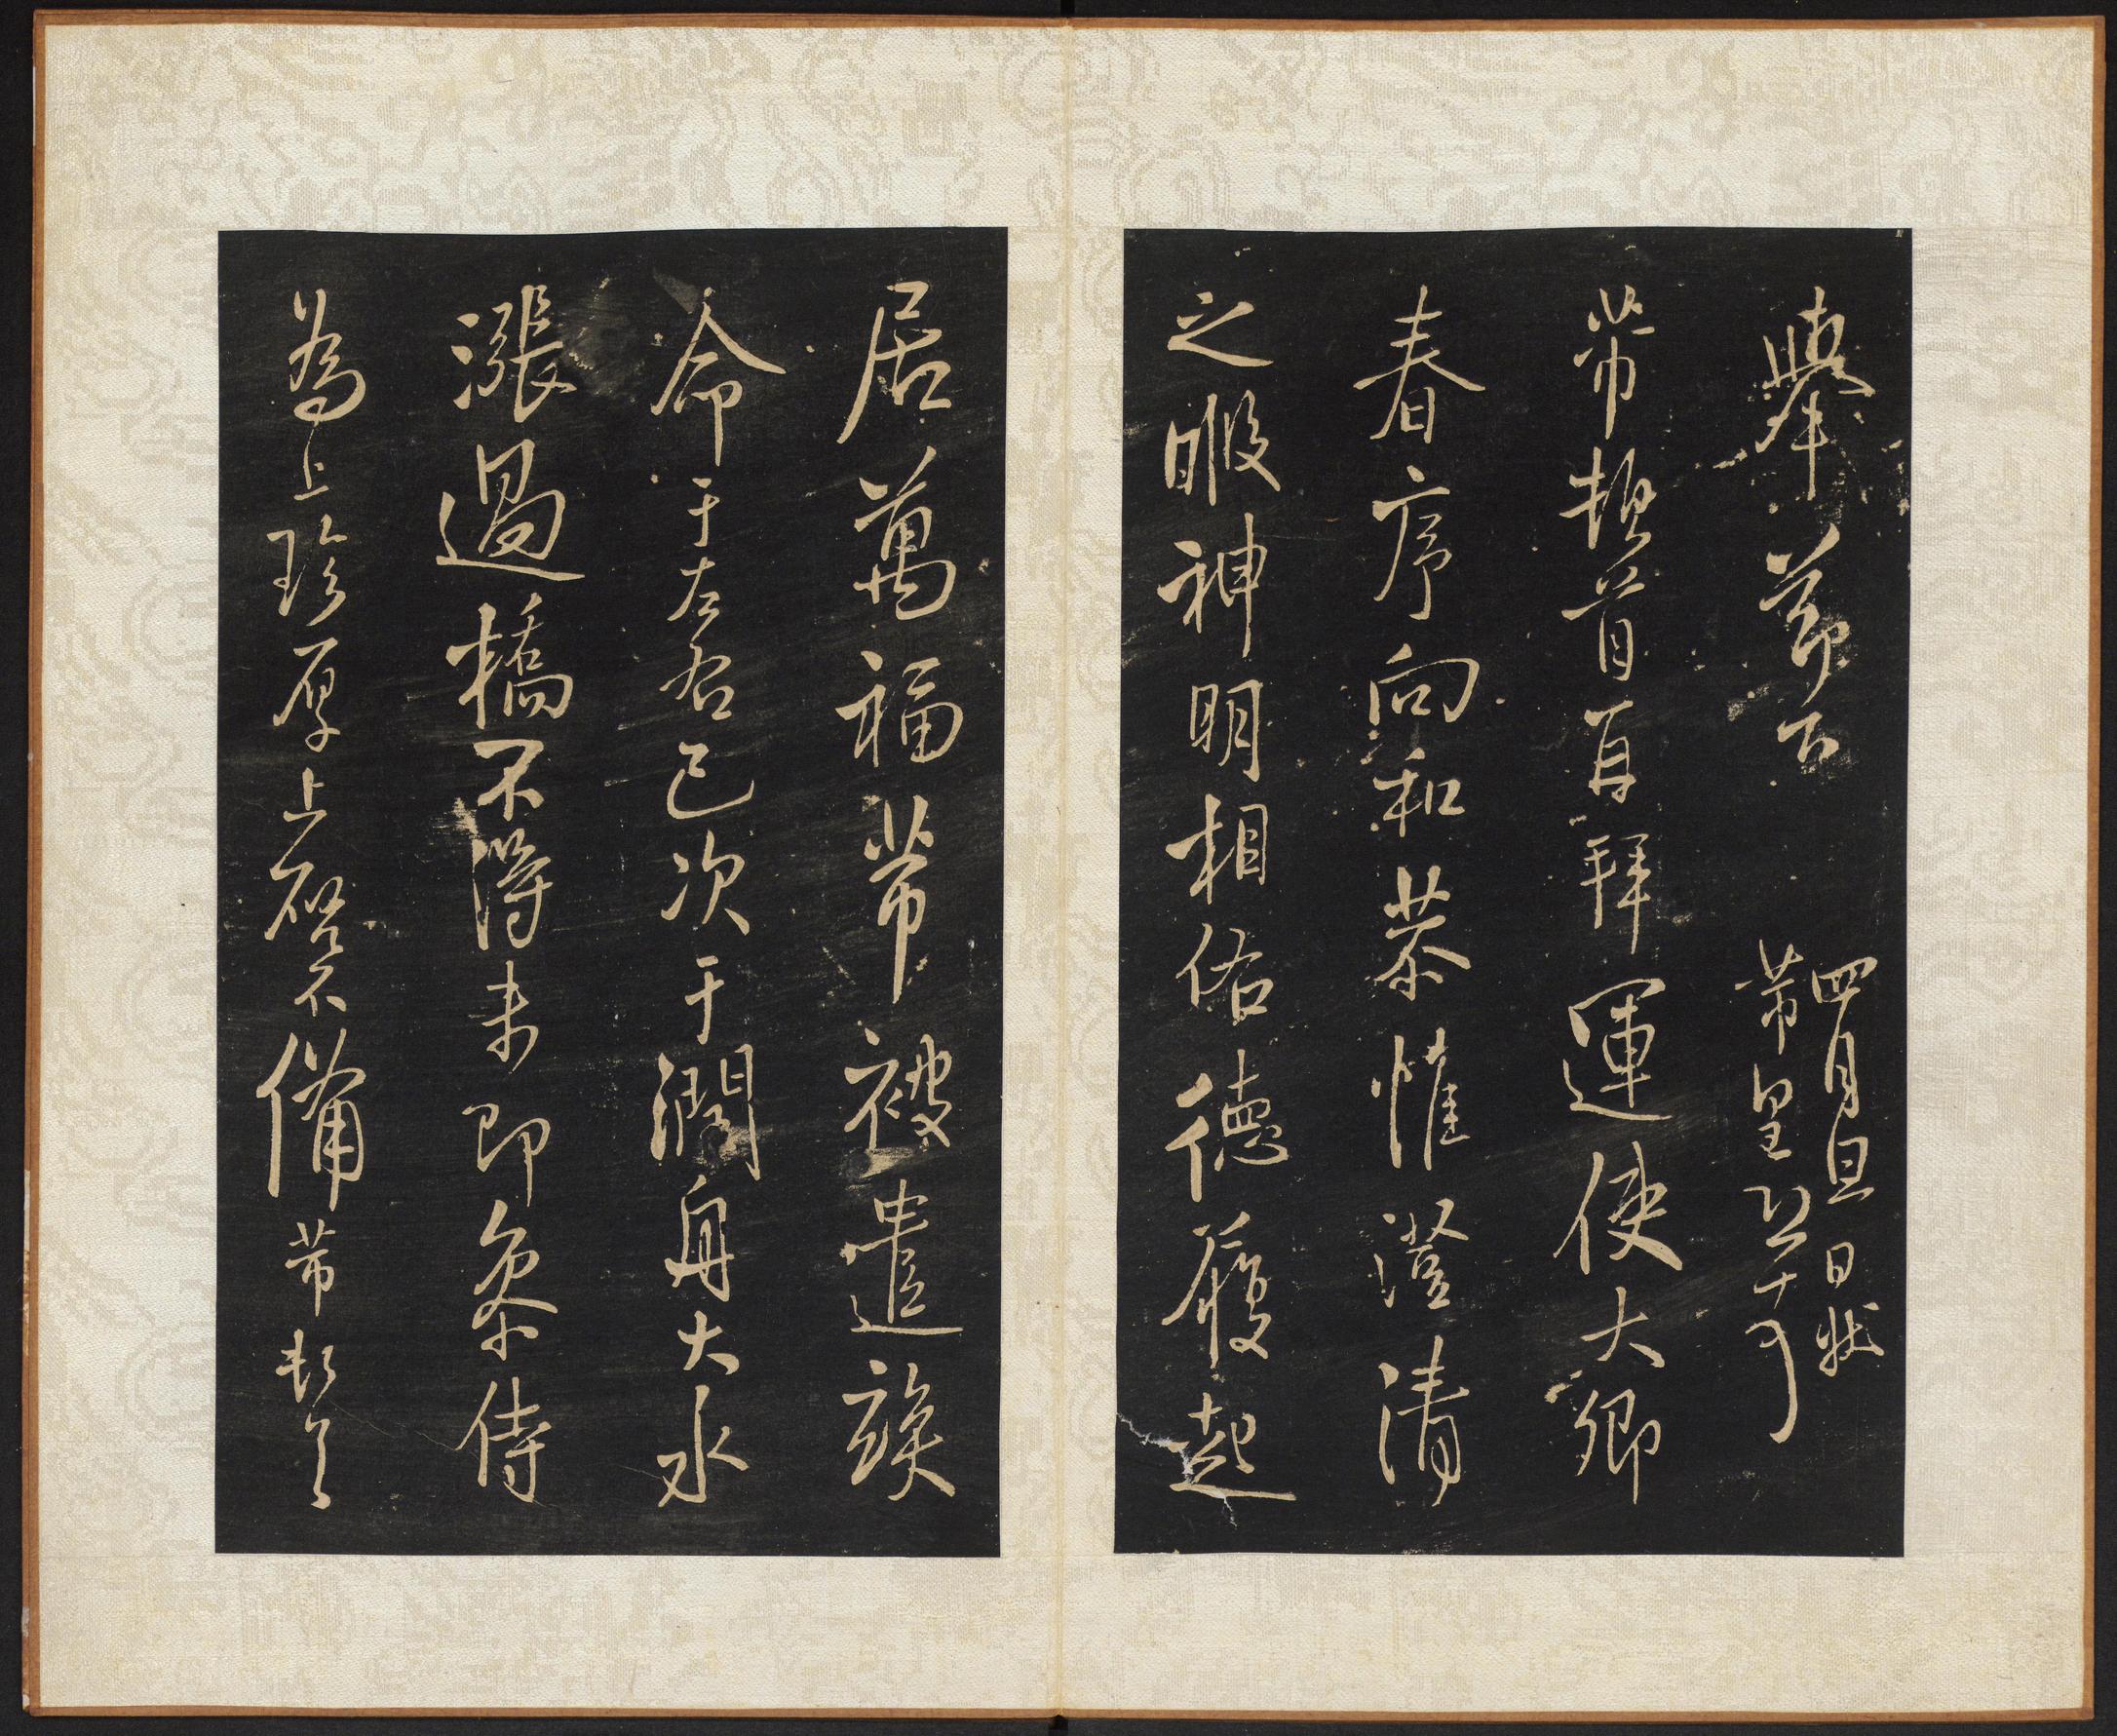 舉節下
四月旦日狀
芾皇恐
芾頓首再拜運使大卿
春序向和恭惟澄清
之暇神明相佑德履起
居萬福芾被遣竢
命于左右已次于潤舟大水
漲過橋不得未即參侍
為上珍厚上啓不備芾頓首